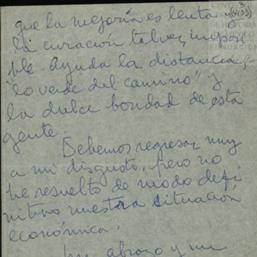 que la mejoría es lenta y
la curación tal vez impos
ible. Ayuda la distancia,
"lo verde del camino" y
la dulce bondad de esta
gente.
Debemos regresar, muy
a mi disgusto, pero no
he resuelto de modo defi
nitivo nuestra situación
económica.
Un abrazo y mi